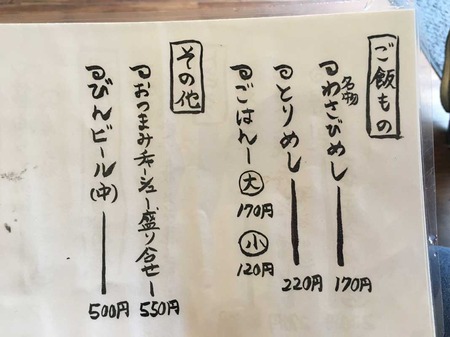 ご飯もの
名物わさびめし 170円
とりめし 220円
ごはん 大 170円 小 120円
その他
おつまみチャーシュー盛り合せ 550円
びんビール(中) 500円